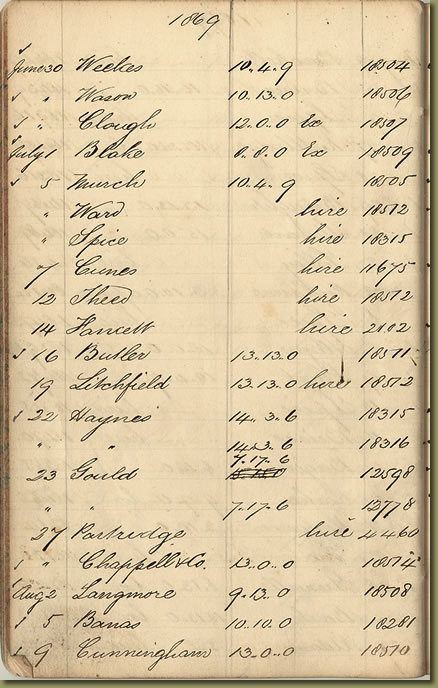 1869
✓
June 30 Weekes 10.4.9 18504
✓ " " Wason 10.13.0 18506
✓ " Clough 12.0.0 Ex 18507
July 1 Blake 8.8.0 Ex 18509
✓ 5 Murch 10.4.9 18505
" Ward hire 18512
" Spice hire 18315
7 hire 11675
12 Theed hire 18512
14 hire 2102
✓ 16 Butler 13.13.0 18511
19 Litchfield 13.13.0 hire 18512
✓ 22 Haynes 14.3.6 18315
" " 14.3.6 18316
7.17.6
23 Gould 12598
" " 7.17.6 12778
27 Partridge hire 4460
✓ " Chappell & Co. 13.0.0 18514
Aug 2 Langmore 9.13.0 18508
✓ 5 Banas 10.10.0 18281
✓ 9 Cunningham 13.0.0 18510